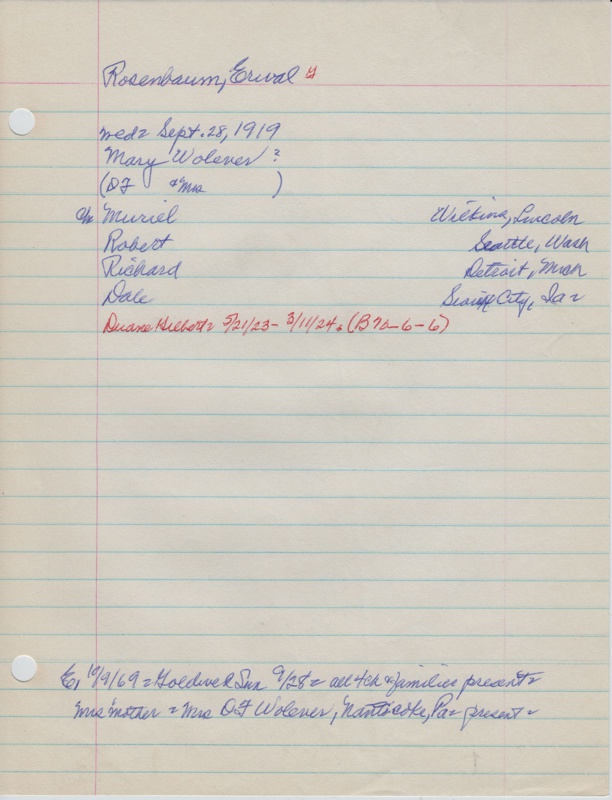 Rosenbaum, Erwal y
wed= Sept. 28, 1919
Mary Wolever ?
(DF & Mrs )
ch Muriel Wilkins, Lincoln
Robert Seattle, Wash
Richard Detroit, Mich
Dale Sioux City, Ia=
Duane Hilbert= 5/21/23- 3/11/24. (B7a-6-6)
E, 10/9/69 = Golden Sun 9/28 = all 4 ch & families present=
Mrs' mother = Mrs DF Wolever, Nanticoke, Pa= present=